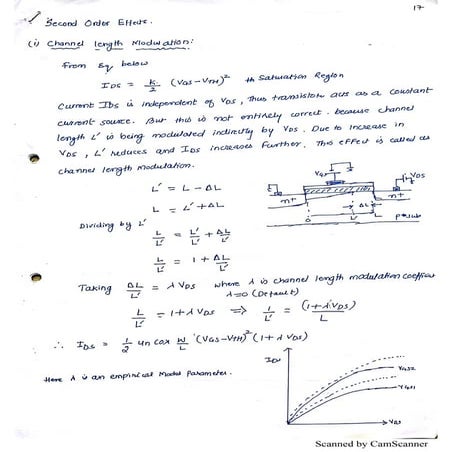 17
Second Order Effects.
(i) Channel length Modulation:
From Eq below
IDS = K/2 (VGS-VTH)² in Saturation Region
Current IDS is independent of VDS, Thus transistor acts as a constant
current source. But this is not entirely correct. because channel
length L' is being modulated indirectly by VDS. Due to increase in
VDS, L' reduces and IDS increases Further. This effect is called as
channel length modulation.
L' = L - ΔL
L = L' + ΔL
Dividing by L'
L/L' = L'/L' + ΔL/L'
L/L' = 1 + ΔL/L'
VGS
VDS
n+
n+
ΔL
0
L'
L
p-sub
Taking ΔL/L' = λ VDS where λ is channel length modulation coefficient
λ=0 (Default)
L/L' = 1+λ VDS ⇒ 1/L' = (1+λVDS)/L
∴ IDS = 1/2 un cox W/L' (VGS-VTH)² (1+λ VDS)
Here λ is an empirical Model Parameter.
IDS
VGS2
VGS1
VDS
Scanned by CamScanner